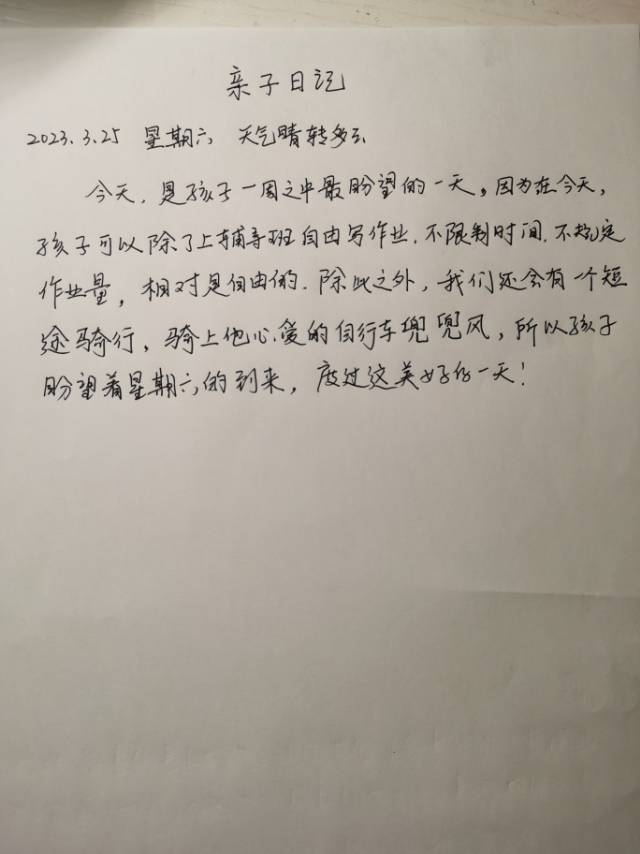 亲子日记
2023.3.25 星期六 天气晴转多云
今天,是孩子一周之中最盼望的一天。因为在今天,
孩子可以除了上辅导班自由写作业.不限制时间.不规定
作业量,相对是自由的.除此之外,我们还会有一个短
途骑行,骑上他心爱的自行车兜兜风,所以孩子
盼望着星期六的到来,度过这美好的一天!